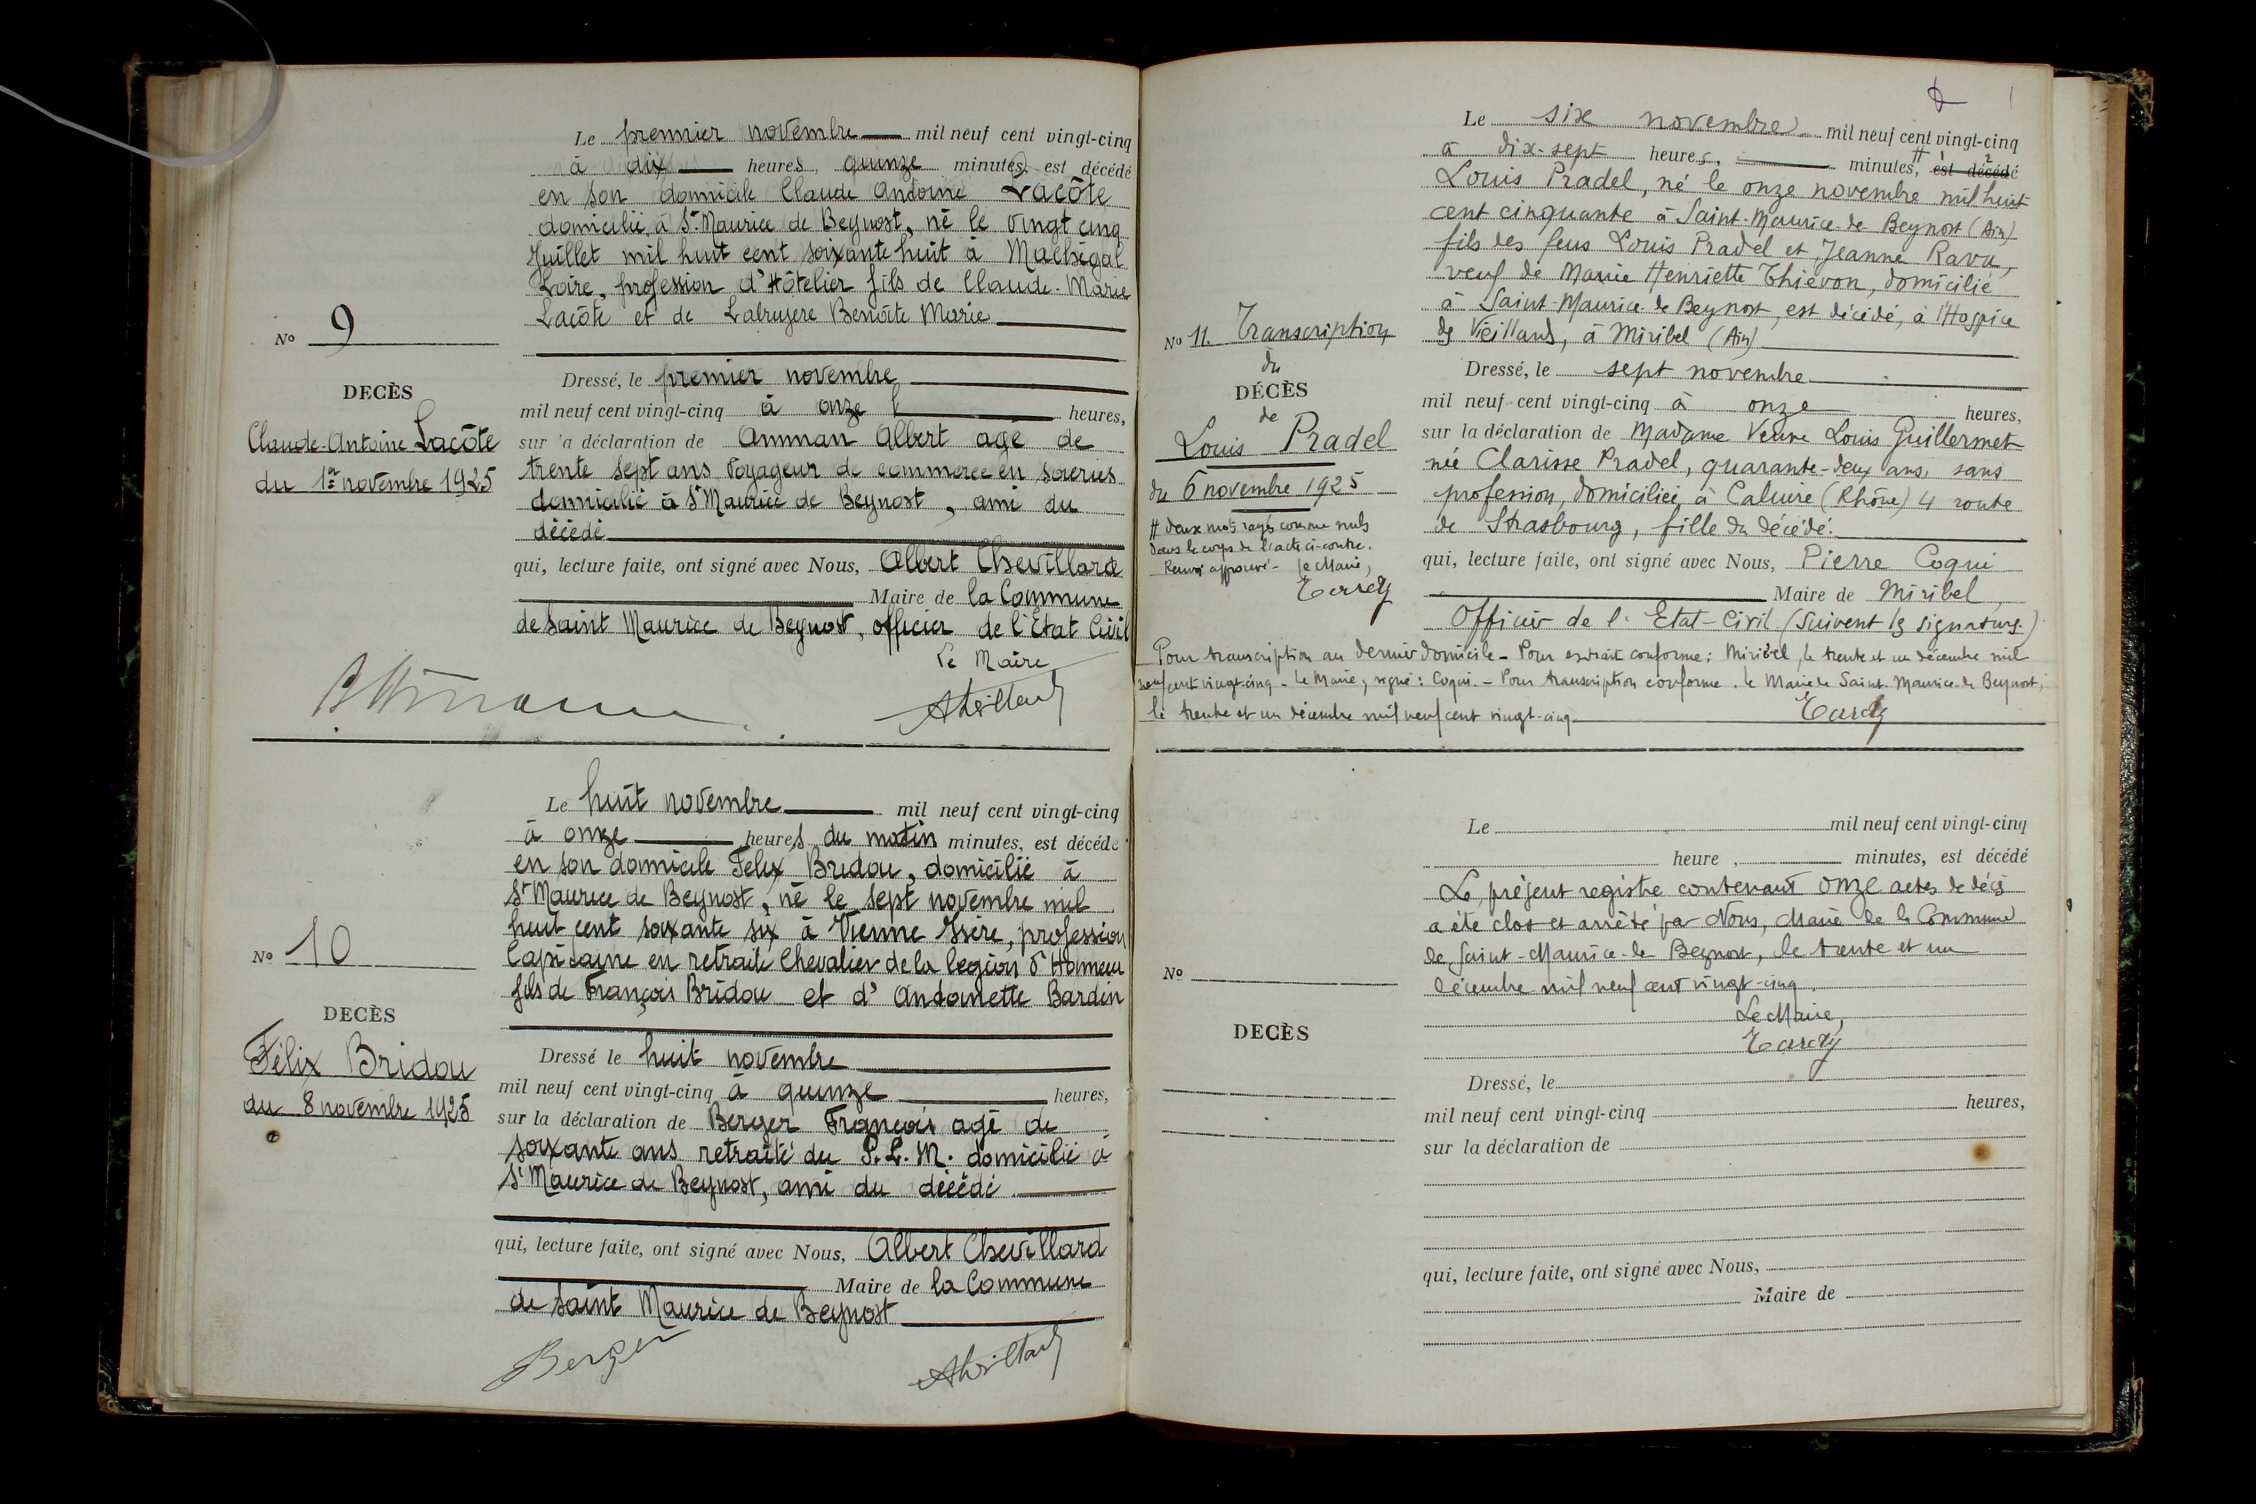 Le premier novembre mil neuf cent vingt-cinq
à dix heures, quinze minutes, est décédé
en son domicile Claude Antoine Lacôte
domicilié, à St Maurice de Beynost, né le vingt cinq
Juillet mil huit cent soixante huit à
Loire, profession d'Hôtelier fils de Claude-Marie
Lacôte et de Labruyere Benoîte Marie
No 9
DECÈS
Claude-Antoine Lacôte
du 1er novembre 1925
Dressé, le premier novembre
mil neuf cent vingt-cinq à onze heures,
sur la déclaration de Amman Albert agé de
trente sept ans Voyageur de commerce en soieries
domicilié à St Maurice de Beynost, ami du
décédé
qui, lecture faite, ont signé avec Nous, Albert Chevillard
Maire de la Commune
de Saint Maurice de Beynost, officier de l'Etat Civil
Le Maire
No 10
DECÈS
Félix Bridou
du 8 novembre 1925
Le huit novembre mil neuf cent vingt-cinq
à onze heures du matin minutes, est décédé
en son domicile Félix Bridou, domicilié à
St Maurice de Beynost, né le sept novembre mil
huit cent soixante six à Vienne Isère, profession
Capitaine en retraite Chevalier de la legion d'Honneur
fils de François Bridou et d'Antoinette Bardin
Dressé le huit novembre
mil neuf cent vingt-cinq à quinze heures,
sur la déclaration de Berger François agé de
soixante ans retraité du P.L.M. domicilié à
St Maurice de Beynost, ami du décédé.
qui, lecture faite, ont signé avec Nous, Albert Chevillard
Maire de la Commune
de Saint Maurice de Beynost
Berger
Le six novembre mil neuf cent vingt-cinq
à dix-sept heures, minutes, # est décédé
Louis Pradel, né le onze novembre mil huit
cent cinquante à Saint-Maurice-de-Beynost (Ain)
fils des feus Louis Pradel et Jeanne Ravu,
veuf de Marie Henriette Thiévon, domicilié
à Saint-Maurice-de Beynost, est décédé, à l'Hospice
des Vieillards, à Miribel (Ain)
No 11. Transcription
du
DÉCÈS
de
Louis Pradel
du 6 novembre 1925
# deux mots rayés comme nuls
dans le corps de l'acte ci-contre.
Renvoi approuvé - Le Maire,
Tardy
Dressé, le sept novembre
mil neuf cent vingt-cinq à onze heures,
sur la déclaration de Madame Veuve Louis Guillermet
née Clarisse Pradel, quarante-deux ans, sans
profession, domiciliée à Caluire (Rhône) 4 route
de Strasbourg, fille du décédé.
qui, lecture faite, ont signé avec Nous, Pierre Coqui
Maire de Miribel,
Officier de l'Etat-Civil (Suivent les signatures.)
Pour transcription au dernier domicile - Pour extrait conforme: Miribel, le trente et un décembre mil
neuf cent vingt-cinq - Le Maire, signé: Coqui. - Pour transcription conforme. Le Maire de Saint-Maurice-de Beynost,
le trente et un décembre mil neuf cent vingt-cinq Tardy
Le mil neuf cent vingt-cinq
heure , minutes, est décédé
Le présent registre contenant onze actes de décès
a été clos et arrêté par Nous, Maire de la Commune
de Saint-Maurice-de Beynost, le trente et un
décembre mil neuf cent vingt-cinq.
Le Maire,
Tardy
No
DECÈS
Dressé, le
mil neuf cent vingt-cinq heures,
sur la déclaration de
qui, lecture faite, ont signé avec Nous,
Maire de